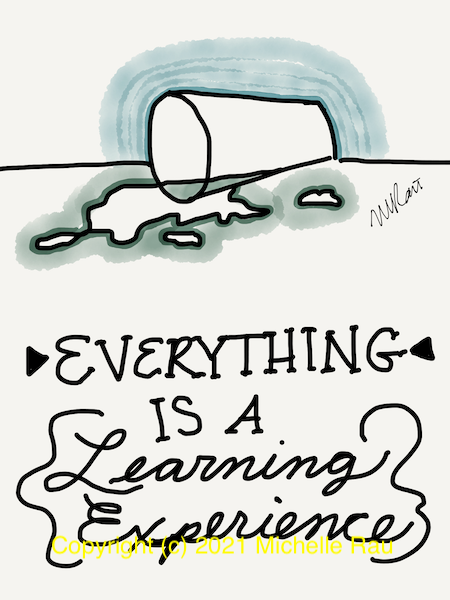 MRau
EVERYTHING
IS A
Learning
Experience
Copyright (c) 2021 Michelle Rau